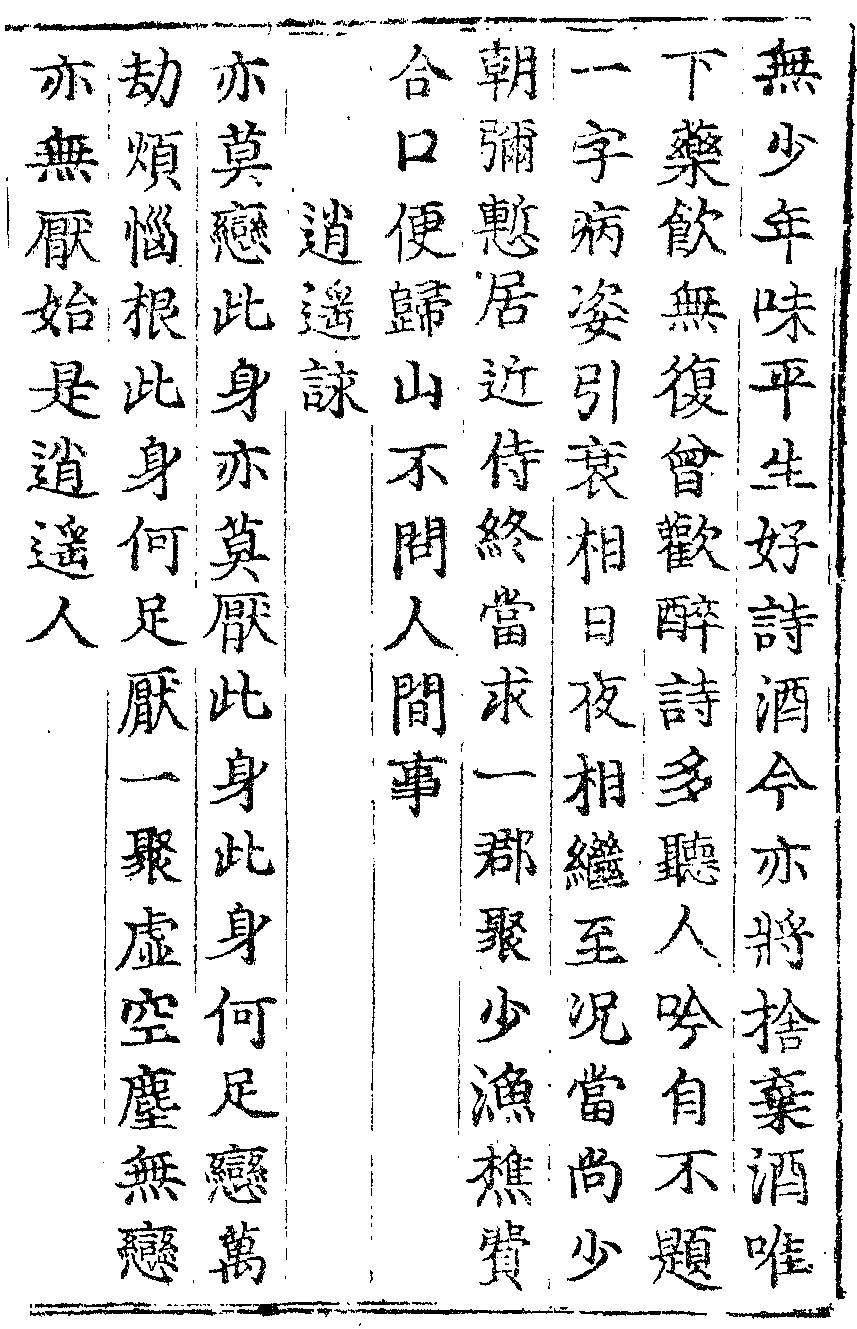 無少年味平生好詩酒今亦將捨棄酒唯
下藥飲無復曾歡醉詩多聽人吟自不題
一字病姿引衰相日夜相繼至況當尚少
朝彌慙居近侍終當求一郡聚少漁樵費
合口便歸山不問人間事
逍遙詠
亦莫戀此身亦莫厭此身此身何足戀萬
劫煩惱根此身何足厭一聚虛空塵無戀
亦無厭始是逍遙人